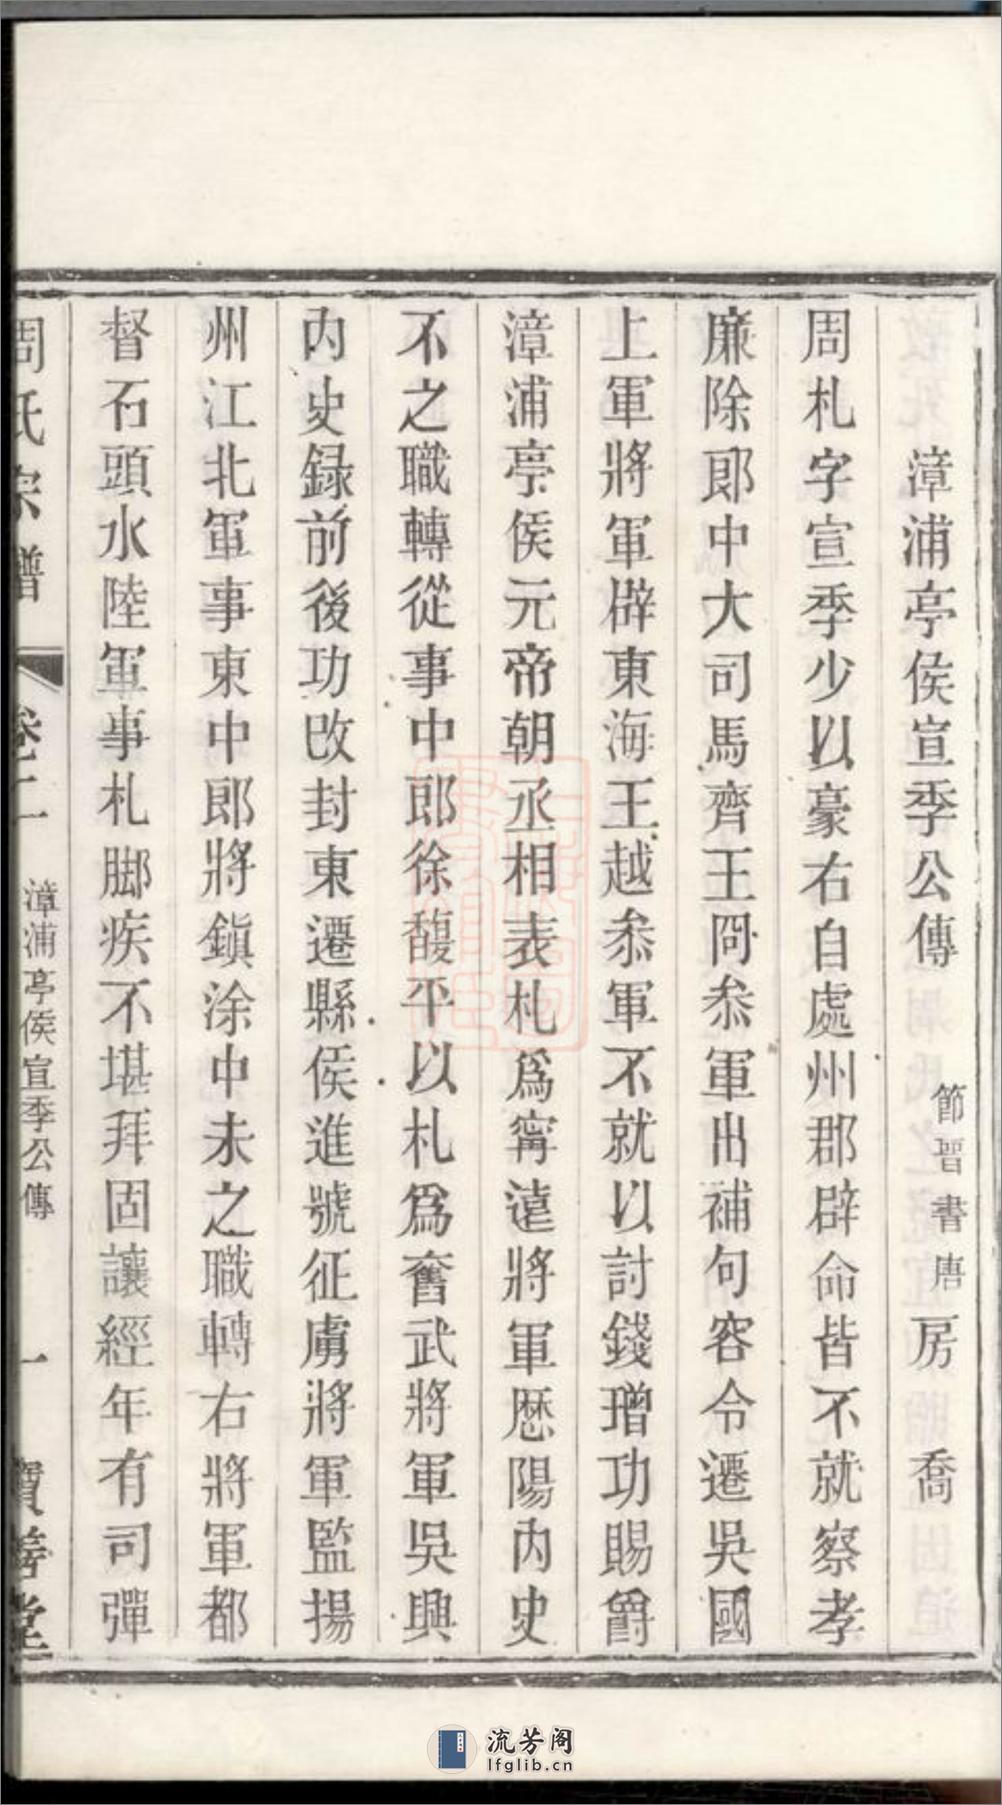 漳浦亭侯宣季公傳 節晋書唐房 喬
周札字宣季少以豪右自處州郡辟命皆不就察孝
廉除郎中大司馬齊王冏叅軍出補句容令遷吳國
上軍將軍辟東海王越叅軍不就以討錢璔功賜爵
漳浦亭侯元帝朝丞相表札爲寜遠將軍歷陽内史
不之職轉從事中郎徐馥平以札爲奮武將軍吳興
内史録前後功改封東遷縣侯進號征虜將軍監揚
州江北軍事東中郎將鎭涂中未之職轉右將軍都
督石頭水陸軍事札脚疾不堪拜固讓經年有司彈
周氏宗譜 卷二 漳浦亭侯宣季公傳 一 寶善堂
流芳阁
lfglib.cn